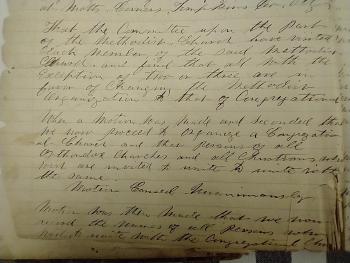 at Motts Corners Tompkins Co.
That the Committee upon the Part
of the Methodist Church have visited
Each Member of the Said Methodist
Church and find that all with the
Exception of two or three are in
favor of Changing the Methodist
Organization to that of Congregational
When a Motion was Made and Seconded that
We now proceed to Organize a Congregation
al Church and that persons of all
Orthodox Churches and all Christians
are invited to unite with
the same
Motion Carried Unanimously
Motion was then Made that we now
read the names of all Persons who
wished to unite with the Congregational Church